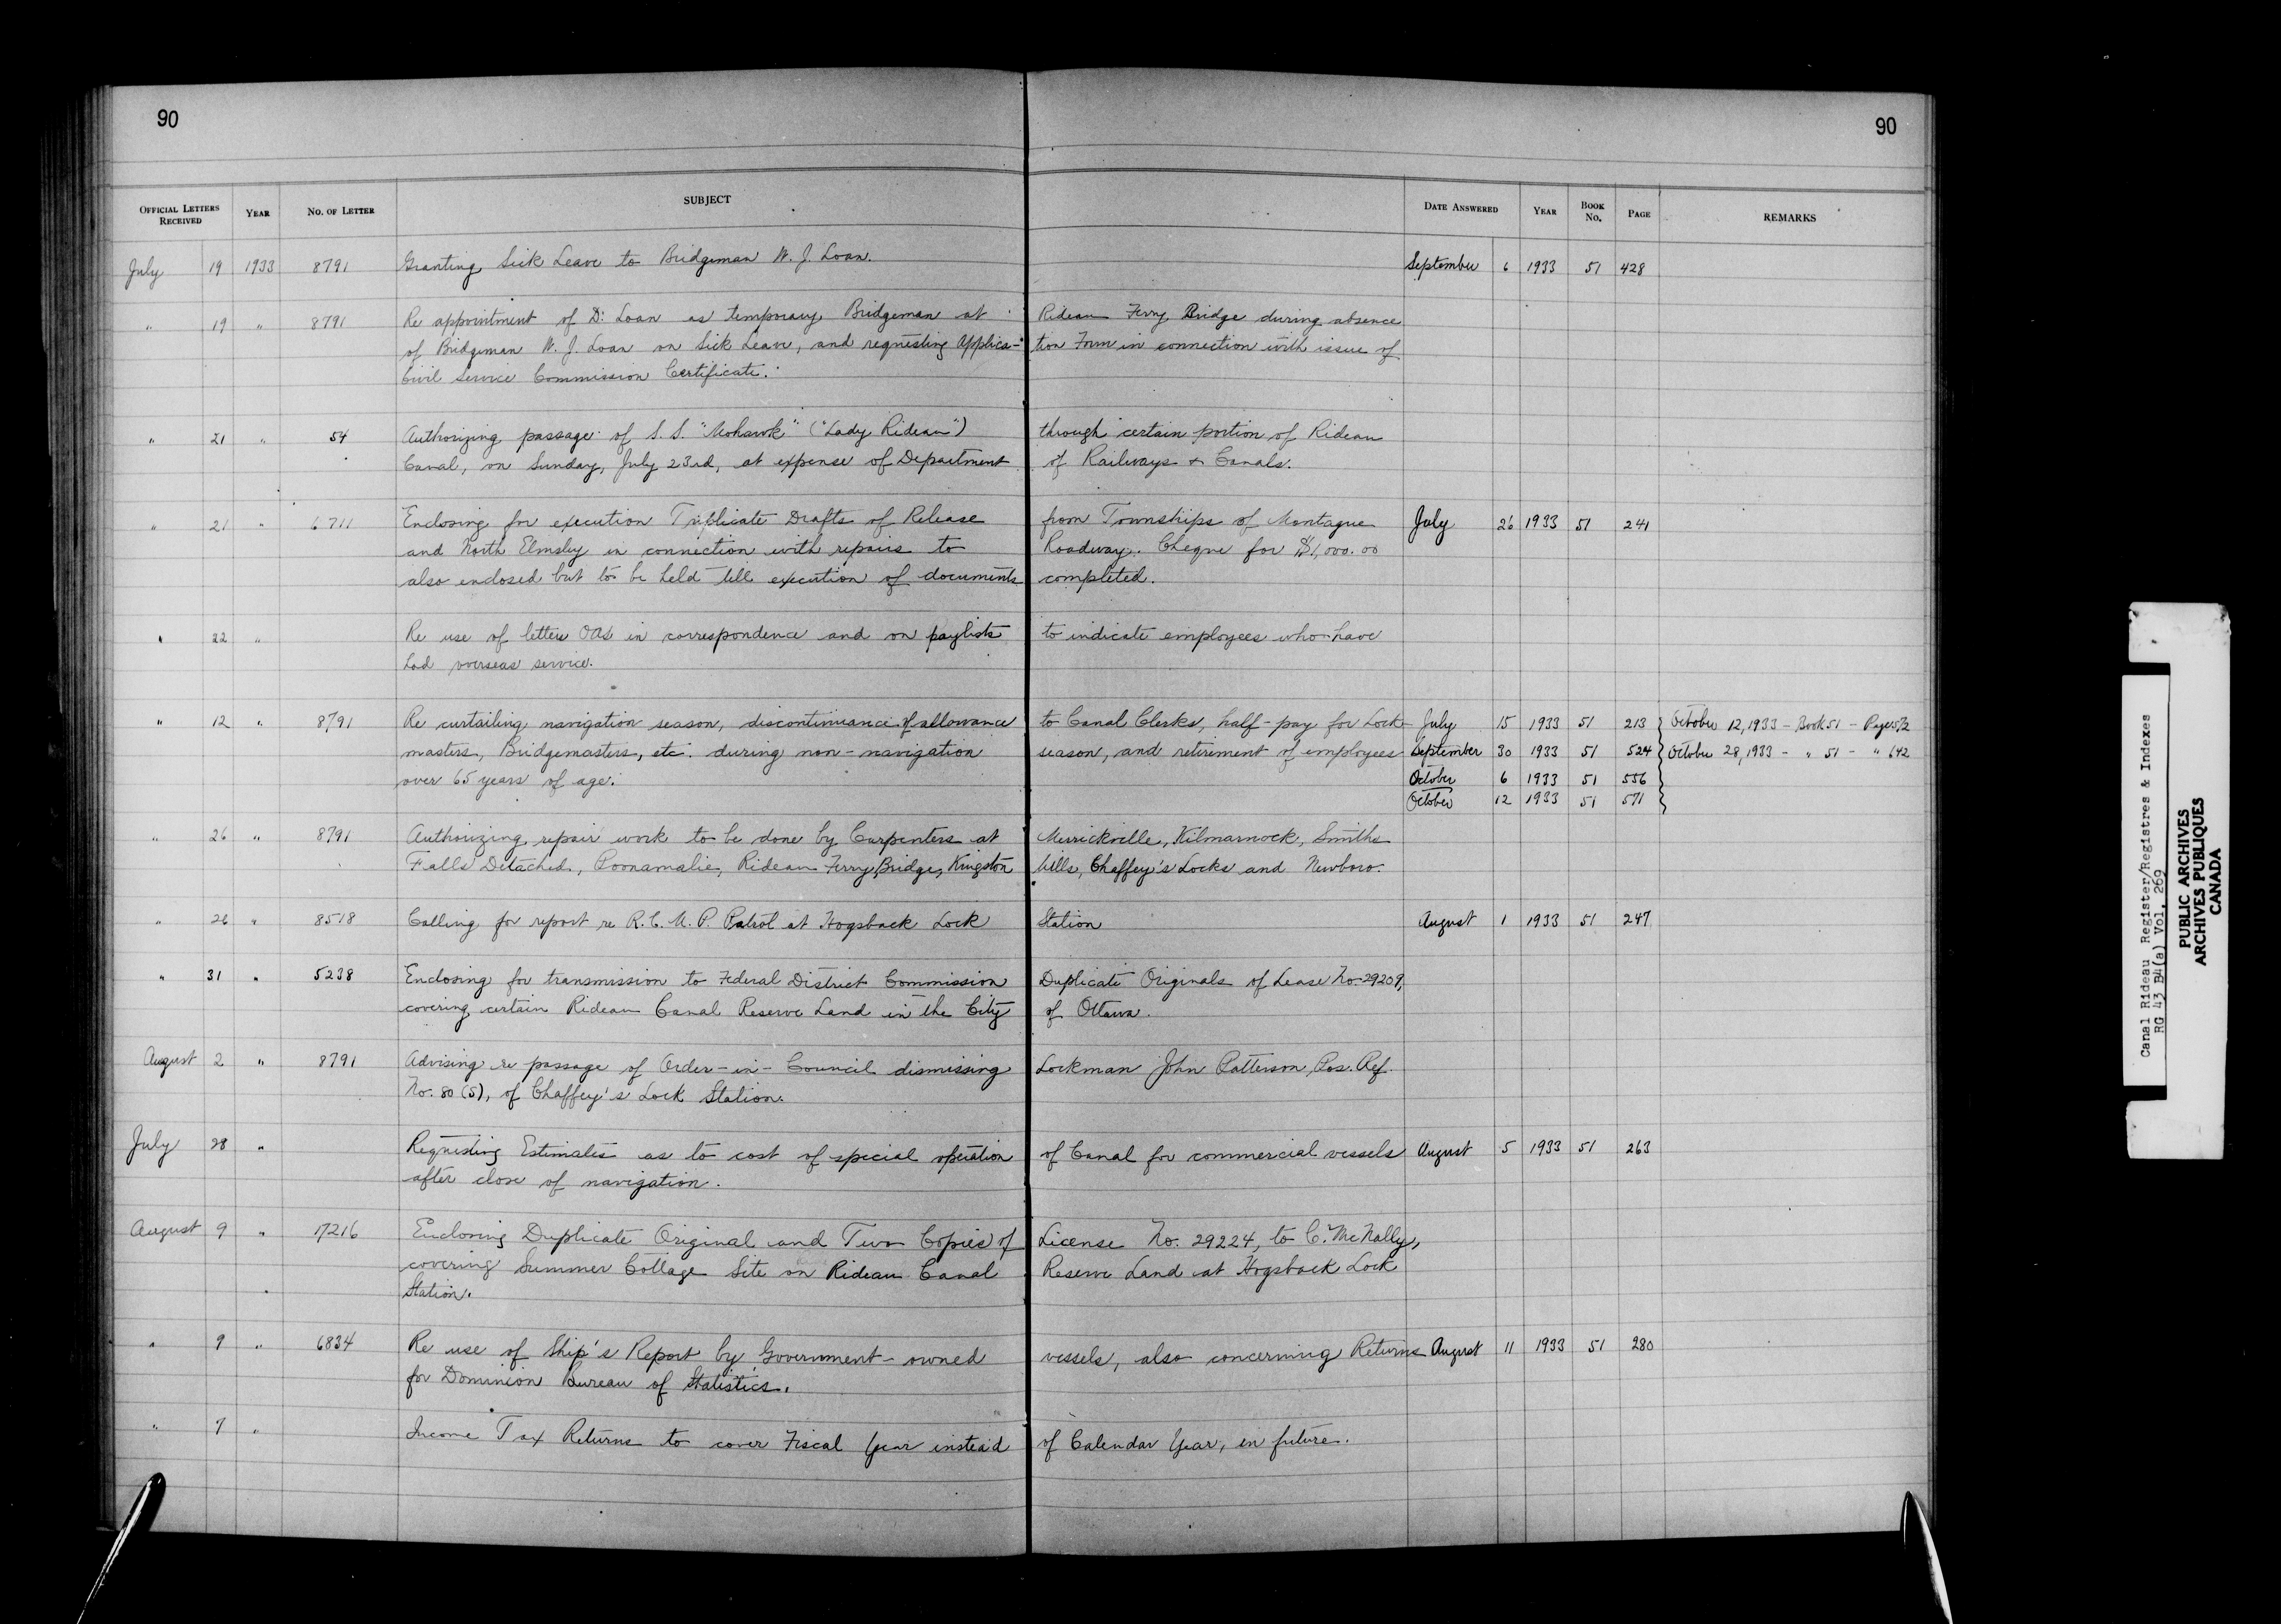 90
90
OFFICIAL LETTERS RECEIVED YEAR NO. OF LETTER SUBJECT DATE ANSWERED YEAR BOOK NO. PAGE REMARKS
July 19 1933 8791 Granting Sick Leave to Bridgeman W. J. Loan. September 6 1933 51 428
" 19 " 8791 Re appointment of D. Loan as temporary Bridgeman at Rideau Ferry Bridge during absence
of Bridgeman W. J. Loan on Sick Leave, and requesting Applica- tion Form in connection with issue of
Civil Service Commission Certificate.
" 21 " 54 Authorizing passage of S. S. "Mohawk" ("Lady Rideau") through certain portion of Rideau
Canal, on Sunday, July 23rd, at expense of Department of Railways & Canals.
" 21 " 6711 Enclosing for execution Triplicate Drafts of Release from Townships of Montague July 26 1933 51 241
and North Elmsley in connection with repairs to Roadway. Cheque for $1,000.00
also enclosed but to be held till execution of documents completed.
" 22 " Re use of letters OAS in correspondence and on paylists to indicate employees who have
had overseas service.
" 12 " 8791 Re curtailing navigation season, discontinuance of allowance to Canal Clerks, half-pay for Lock- July 15 1933 51 213 October 12, 1933 - Book 51 - Page 572
masters, Bridgemasters, etc. during non-navigation season, and retirement of employees September 30 1933 51 524 October 28, 1933 - " 51 - " 642
over 65 years of age. October 6 1933 51 556
October 12 1933 51 571
" 26 " 8791 Authorizing repair work to be done by Carpenters at Merrickville, Kilmarnock, Smiths
Falls Detached, Poonamalie, Rideau Ferry Bridge, Kingston Mills, Chaffey's Locks and Newboro.
" 26 " 8518 Calling for report re R.C.M.P. Patrol at Hogsback Lock Station August 1 1933 51 247
" 31 " 5238 Enclosing for transmission to Federal District Commission Duplicate Originals of Lease No. 29209,
covering certain Rideau Canal Reserve Land in the City of Ottawa.
August 2 " 8791 Advising re passage of Order-in-Council dismissing Lockman John Patterson, Pos. Ref.
No. 80 (S), of Chaffey's Lock Station.
July 28 " Requesting Estimates as to cost of special operation of Canal for commercial vessels August 5 1933 51 263
after close of navigation.
August 9 " 17216 Enclosing Duplicate Original and Two Copies of License No. 29224, to C. McNally,
covering Summer Cottage Site on Rideau Canal Reserve Land at Hogsback Lock
Station.
" 9 " 6834 Re use of Ship's Report by Government-owned vessels, also concerning Returns August 11 1933 51 280
for Dominion Bureau of Statistics.
" 7 " Income Tax Returns to cover Fiscal Year instead of Calendar Year, in future.
Canal Rideau Register/Registres & Indexes
RG 43 B4(a) Vol. 269
PUBLIC ARCHIVES
ARCHIVES PUBLIQUES
CANADA